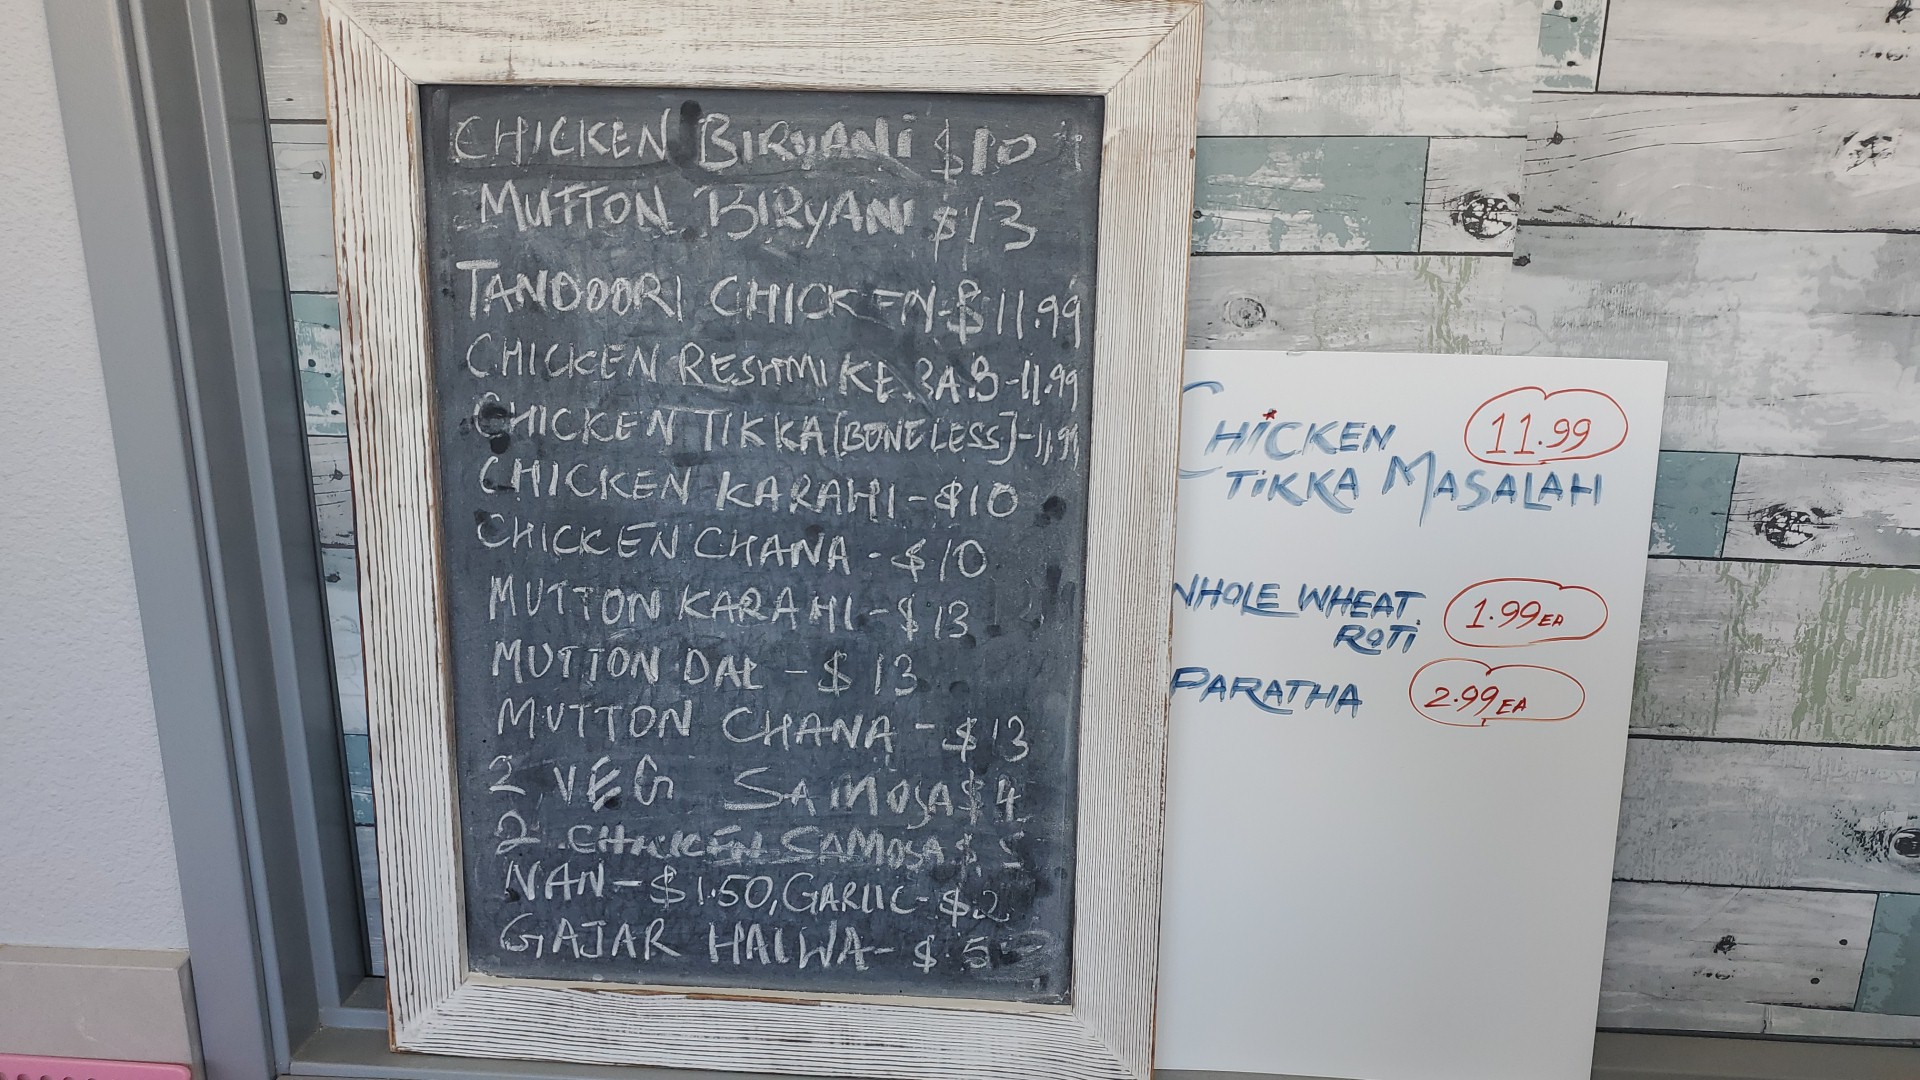 CHICKEN BIRYANI $10
MUTTON BIRYANI $13
TANDOORI CHICKEN-$11.99
CHICKEN RESHMI KEBAB-11.99
CHICKEN TIKKA[BONELESS]-11.99
CHICKEN KARAHI-$10
CHICKEN CHANA-$10
MUTTON KARAHI-$13
MUTTON DAL-$13
MUTTON CHANA-$13
2 VEG SAMOSA $4
2 CHICKEN SAMOSA $5
NAN-$1.50, GARLIC-$2
GAJAR HALWA-$5
CHICKEN 11.99
TIKKA MASALAH
WHOLE WHEAT 1.99EA
ROTI
PARATHA 2.99EA